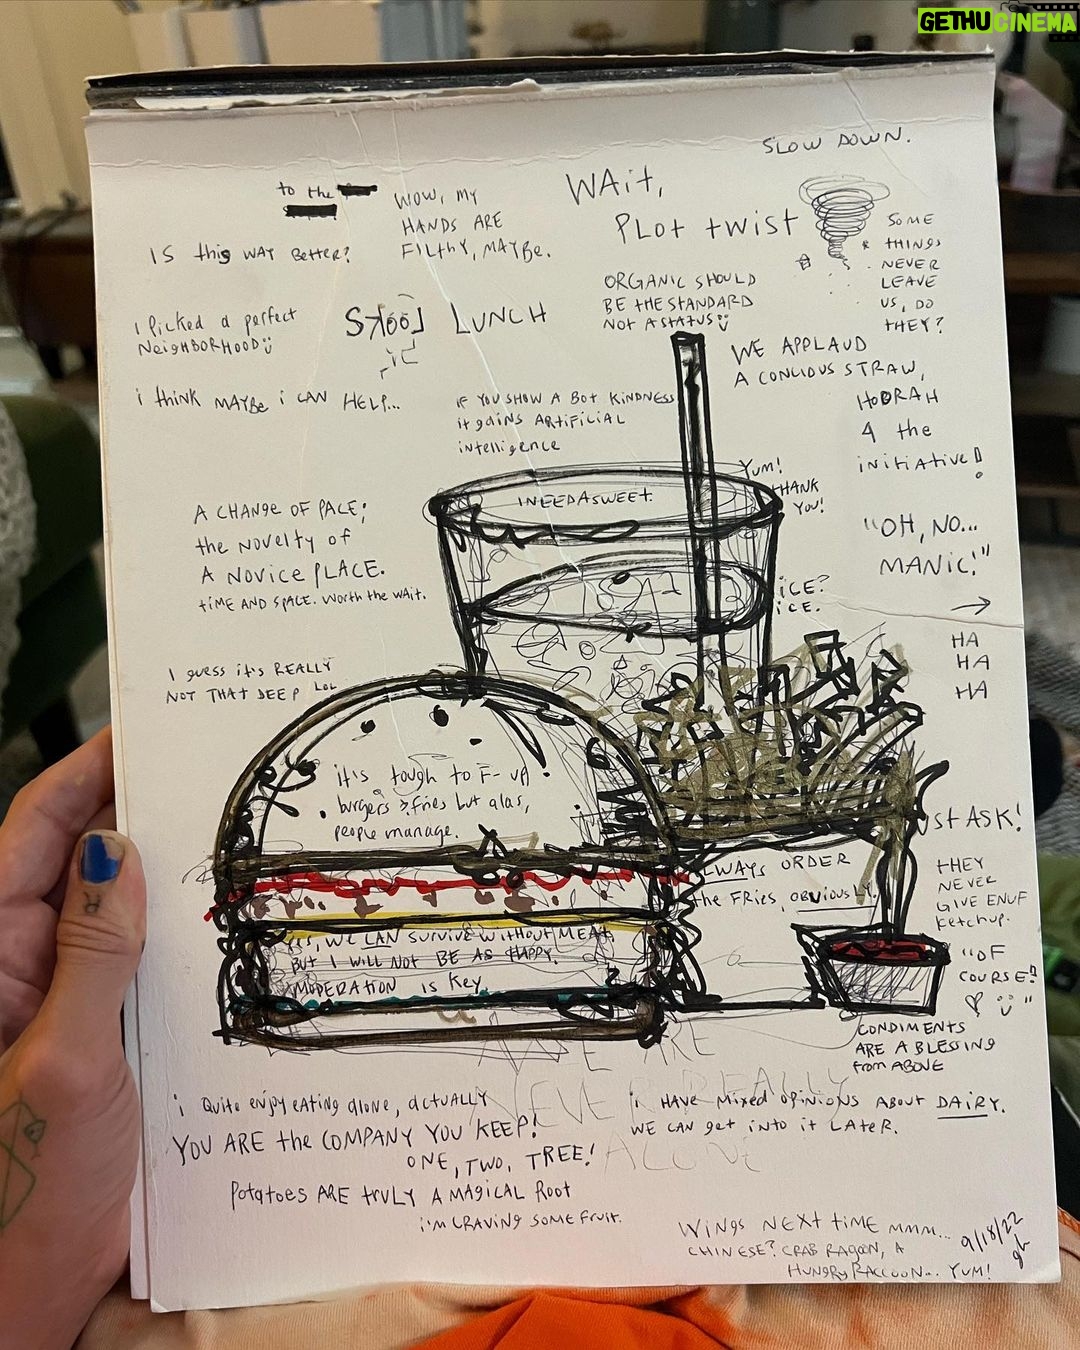 GETHUCINEMA
SLOW DOWN.
to the
WOW, MY
HANDS ARE
FILTHY, MAYBE.
WAit,
PLOT twist
IS this WAY BETTER?
SOME
THINGS
NEVER
LEAVE
US, DO
THEY?
ORGANIC SHOULD
BE THE STANDARD
NOT A STATUS
i Picked a perfect
NEIGHBORHOOD
LOOKS LUNCH
WE APPLAUD
A CONCIOUS STRAW,
HOORAH
4 the
initiATIVE!
i think MAYBE i CAN HELP...
iF YOU SHOW A BOT KINDNESS
it gAiNS ARTiFiCiAL
intelligence
YUM!
THANK
YOU!
I NEED A SWEET.
A CHANGE OF PACE;
the NOVELTY of
A NOVICE PLACE.
tiME AND SPACE. Worth the WAit.
"OH, NO...
MANIC!"
iCE?
iCE.
HA
HA
HA
I guess it's REALLY
NOT THAT DEEP LOL
it's tough to F- up
burgers & fries but alas,
people manage.
JUST ASK!
ALWAYS ORDER
the FRIES, OBVIOUSLY.
THEY
NEVER
GIVE ENUF
Ketchup.
YES, WE CAN SURVIVE WITHOUT MEAT,
BUT I WILL NOT BE AS HAPPY.
MODERATION IS KEY.
"OF
COURSE!
"
CONDIMENTS
ARE A BLESSING
from ABOVE
WE ARE
NEVER REALLY
ALONE
i Quite enjoy eating alone, actually
YOU ARE the COMPANY YOU KEEP!
ONE, TWO, TREE!
i HAVE MIXED OPINIONS ABOUT DAIRY.
WE CAN get into it LATER.
Potatoes ARE truLY A MAGICAL Root
i'm CRAVING SOME FRUIT.
WINGS NEXT TIME MMM...
CHINESE? CRAB RAGOON, A
HUNGRY RACCOON... YUM!
9/18/22
gh